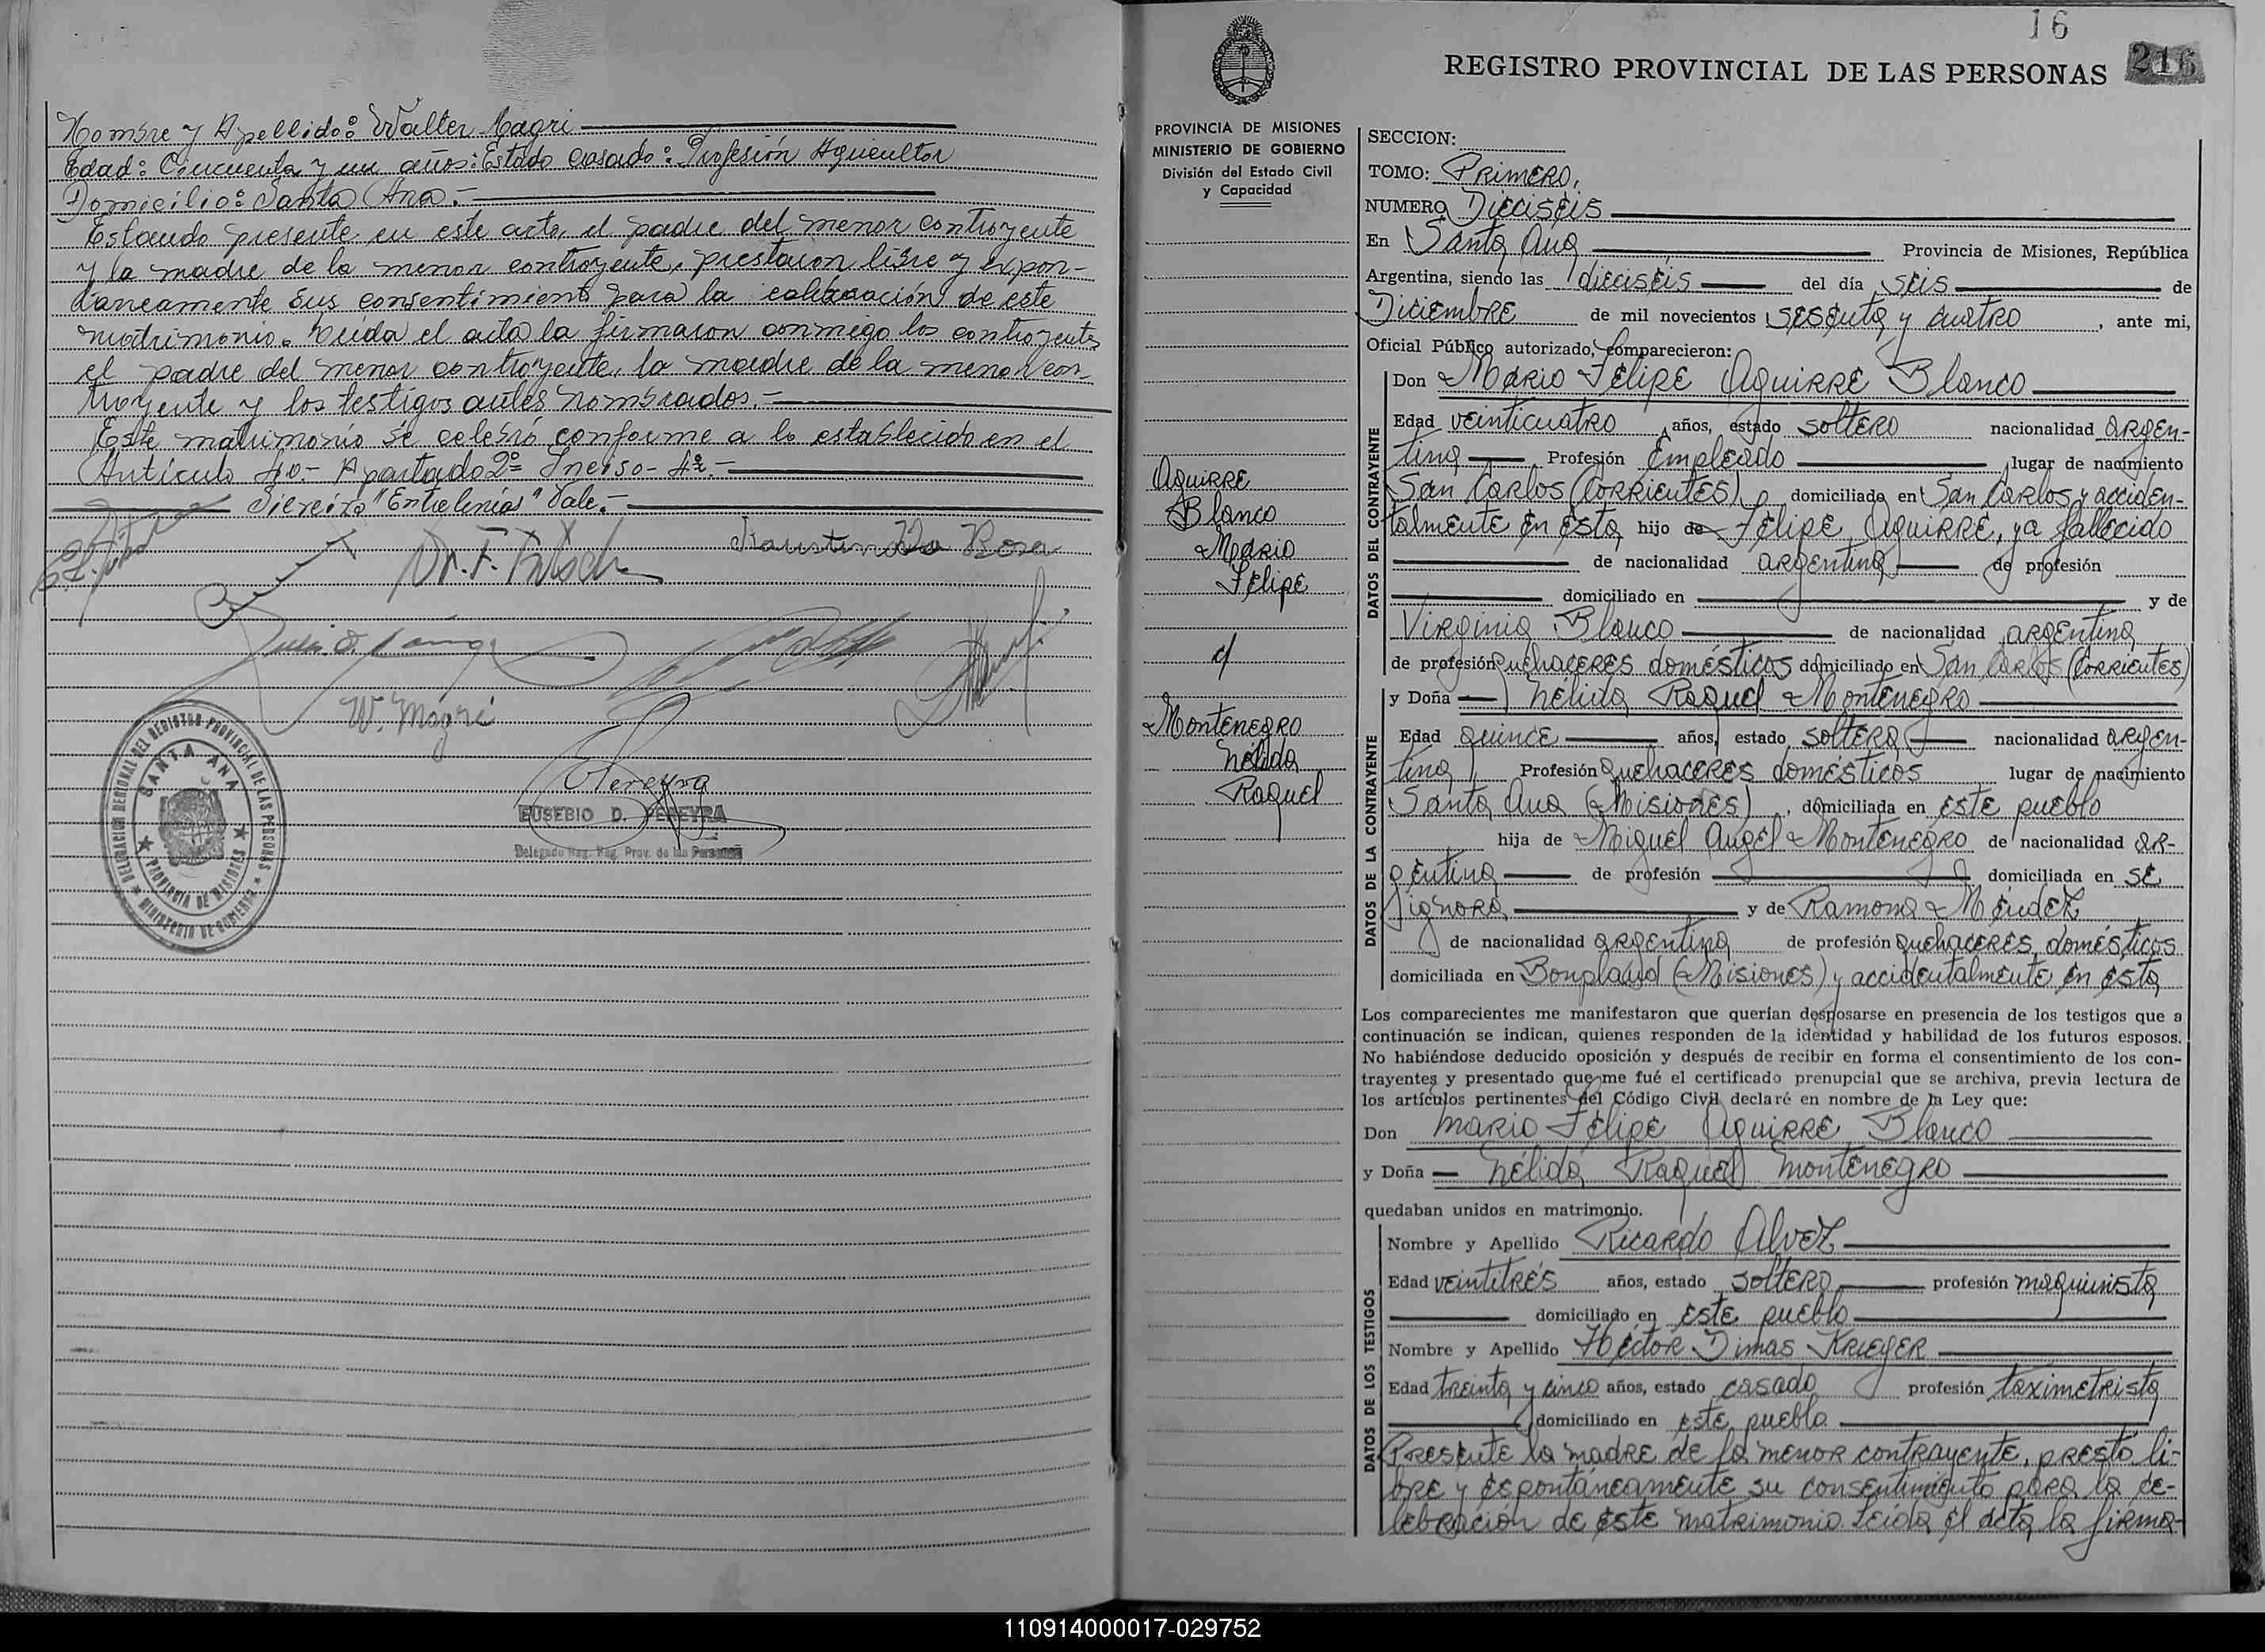 Nombre y Apellido: Walter Magri
Edad: Cincuenta y un años: Estado Casado: Profesión Agricultor
Domicilio: Santa Ana.-
Estando presente en este acto, el padre del menor contrayente
y la madre de la menor contrayente, prestaron libre y expon-
taneamente sus consentimiento para la celebración de este
matrimonio. Leida el acta la firmaron conmigo los contrayentes
el padre del menor contrayente, la madre de la menor con-
trayente y los testigos antes nombrados.-
Este matrimonio se celebró conforme a lo establecido en el
Articulo 40.- Apartado 2º Inciso- 4º.-
"Entrelinias" Vale.-
Dr. F.
Da Rosa
W. Magri
Pereyra
EUSEBIO D. PEREYRA
Delegado Reg. Reg. Prov. de las Personas
DELEGACION REGIONAL DEL REGISTRO PROVINCIAL DE LAS PERSONAS
MINISTERIO DE GOBIERNO
SANTA ANA
PROVINCIA DE MISIONES
16
REGISTRO PROVINCIAL DE LAS PERSONAS
216
PROVINCIA DE MISIONES
MINISTERIO DE GOBIERNO
División del Estado Civil
y Capacidad
Aguirre
Blanco
Mario
Felipe
c/
Montenegro
Nélida
Raquel
SECCION:
TOMO: Primero,
NUMERO Dieciséis
En Santa Ana Provincia de Misiones, República
Argentina, siendo las dieciséis del día seis de
Diciembre de mil novecientos sesenta y cuatro, ante mi,
Oficial Público autorizado, comparecieron:
DATOS DEL CONTRAYENTE
Don Mario Felipe Aguirre Blanco
Edad veinticuatro años, estado soltero nacionalidad argen-
tina Profesión Empleado lugar de nacimiento
San Carlos (Corrientes) domiciliado en San Carlos y acciden-
talmente en ésta, hijo de Felipe Aguirre, ya fallecido
de nacionalidad argentina de profesión
domiciliado en y de
Virginia Blanco de nacionalidad argentina
de profesión quehaceres domésticos domiciliado en San Carlos (Corrientes)
DATOS DE LA CONTRAYENTE
y Doña Nélida Raquel Montenegro
Edad quince años, estado soltera nacionalidad argen-
tina Profesión quehaceres domésticos lugar de nacimiento
Santa Ana (Misiones), domiciliada en este pueblo
hija de Miguel Angel Montenegro de nacionalidad ar-
gentina de profesión domiciliada en se
ignora y de Ramona Méndez
de nacionalidad argentina de profesión quehaceres domésticos
domiciliada en Bonpland (Misiones) y accidentalmente en ésta,
Los comparecientes me manifestaron que querían desposarse en presencia de los testigos que a
continuación se indican, quienes responden de la identidad y habilidad de los futuros esposos.
No habiéndose deducido oposición y después de recibir en forma el consentimiento de los con-
trayentes y presentado que me fué el certificado prenupcial que se archiva, previa lectura de
los artículos pertinentes del Código Civil declaré en nombre de la Ley que:
Don Mario Felipe Aguirre Blanco
y Doña Nélida Raquel Montenegro
quedaban unidos en matrimonio.
DATOS DE LOS TESTIGOS
Nombre y Apellido Ricardo Alvez
Edad veintitrés años, estado soltero profesión maquinista
domiciliado en este pueblo
Nombre y Apellido Héctor Dimas Krieger
Edad treinta y cinco años, estado casado profesión taximetrista
domiciliado en este pueblo.
Presente la madre de la menor contrayente, presta li-
bre y espontáneamente su consentimiento para la ce-
lebración de este matrimonio. Leida el acta, la firma-
110914000017-029752